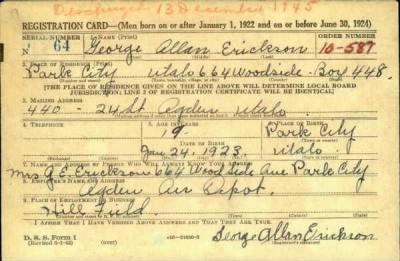 Discharged 13 December 1945
REGISTRATION CARD—(Men born on or after January 1, 1922 and on or before June 30, 1924)
SERIAL NUMBER 1. NAME (Print) ORDER NUMBER
N 64 George Allan Erickson 10-587
2. PLACE OF RESIDENCE (Print)
Park City Utah 664 Woodside - Box 448.
[THE PLACE OF RESIDENCE GIVEN ON THE LINE ABOVE WILL DETERMINE LOCAL BOARD
JURISDICTION; LINE 2 OF REGISTRATION CERTIFICATE WILL BE IDENTICAL]
3. MAILING ADDRESS
440 - 24 St Ogden Utah
4. TELEPHONE 5. AGE IN YEARS 6. PLACE OF BIRTH
19. Park City
DATE OF BIRTH
Jan 24. 1923. Utah.
7. NAME AND ADDRESS OF PERSON WHO WILL ALWAYS KNOW YOUR ADDRESS
Mrs G. E. Erickson 664 Wood Side Ave Park City
8. EMPLOYER'S NAME AND ADDRESS
Ogden Air Depot.
9. PLACE OF EMPLOYMENT OR BUSINESS
Hill Field.
I AFFIRM THAT I HAVE VERIFIED ABOVE ANSWERS AND THAT THEY ARE TRUE.
D. S. S. Form 1
(Revised 6-9-42) (over) George Allan Erickson